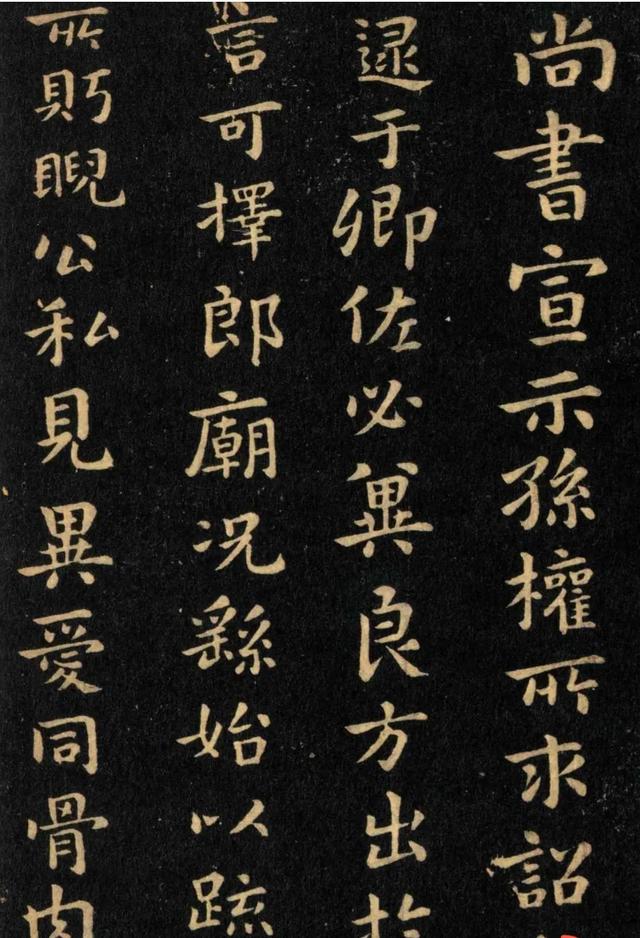 尚書宣示孫權所求詔
逮于卿佐必兾良方出於
言可擇郎廟况繇始以疏
所貺睨公私見異愛同骨肉